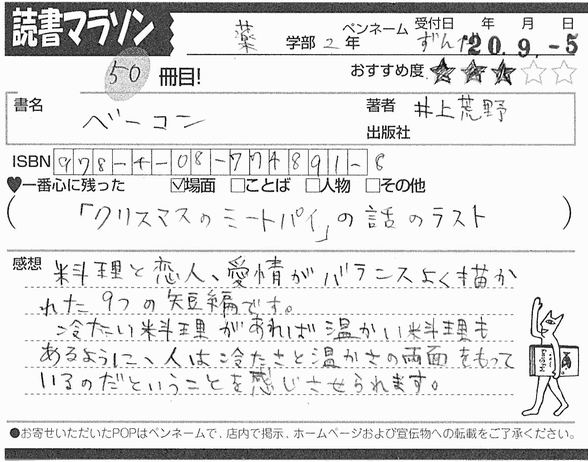 読書マラソン
薬 学部 2年
ペンネーム ずんだ
受付日 年 月 日
'20. 9. -5
50 冊目!
おすすめ度 ★★★☆☆
書名 ベーコン
著者 井上荒野
出版社
ISBN 978-4-08-774891-8
♥一番心に残った ☑場面 □ことば □人物 □その他
(「クリスマスのミートパイ」の話のラスト)
感想 料理と恋人、愛情がバランスよく描か
れた9つの短編です。
冷たい料理があれば温かい料理も
あるように、人は冷たさと温かさの両面をもって
いるのだということを感じさせられます。
●お寄せいただいたPOPはペンネームで、店内で掲示、ホームページおよび宣伝物への転載をご了承ください。